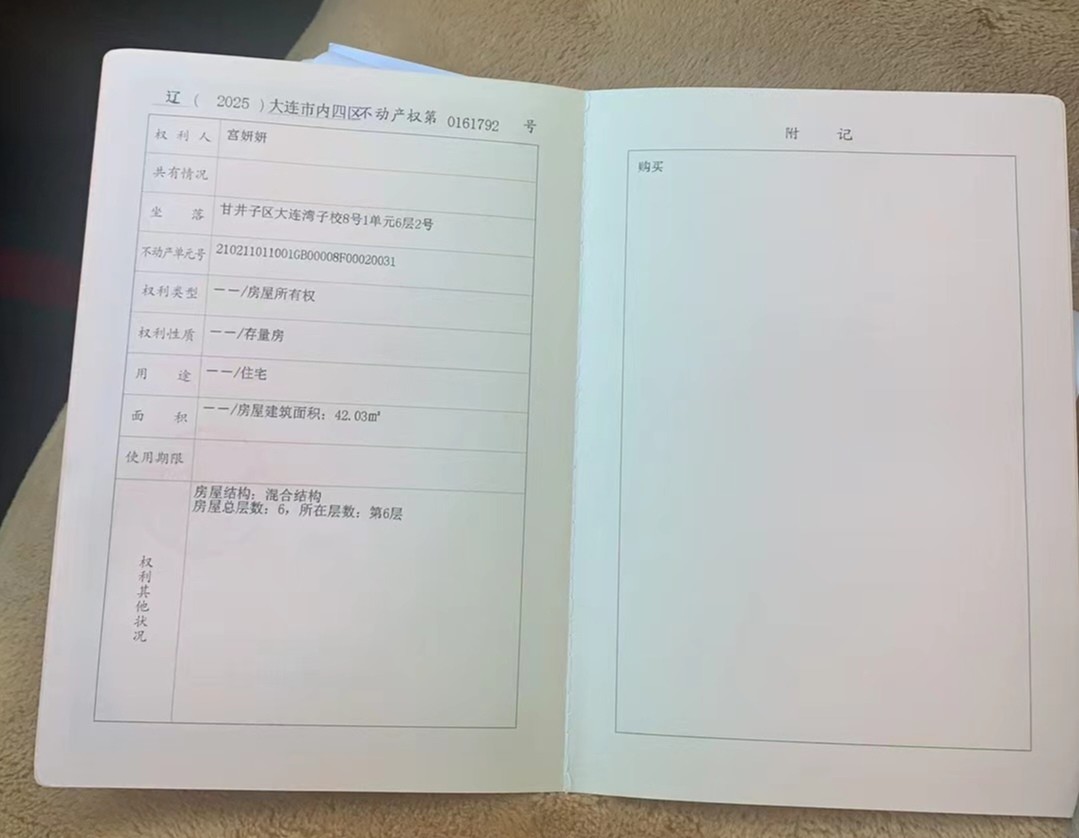 辽（ 2025 ）大连市内四区不动产权第 0161792 号
权利人 宫妍妍
共有情况
坐落 甘井子区大连湾子校8号1单元6层2号
不动产单元号 210211011001GB00008F00020031
权利类型 一一/房屋所有权
权利性质 一一/存量房
用途 一一/住宅
面积 一一/房屋建筑面积：42.03㎡
使用期限
权利其他状况
房屋结构：混合结构
房屋总层数：6，所在层数：第6层
附记
购买